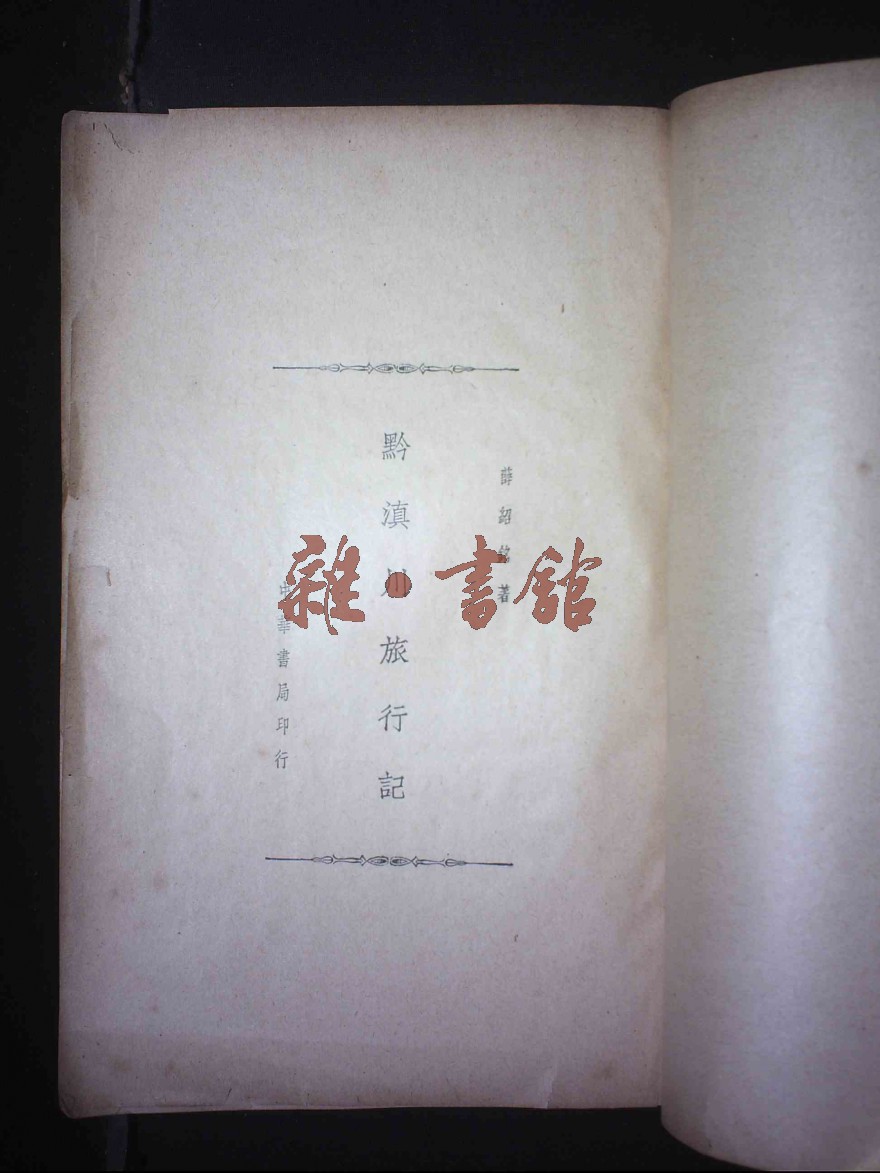 薛紹銘著
黔滇川旅行記
中華書局印行
雜·書館